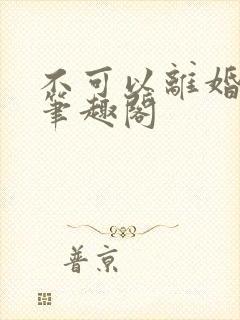 不可以離婚
筆趣閣
普京